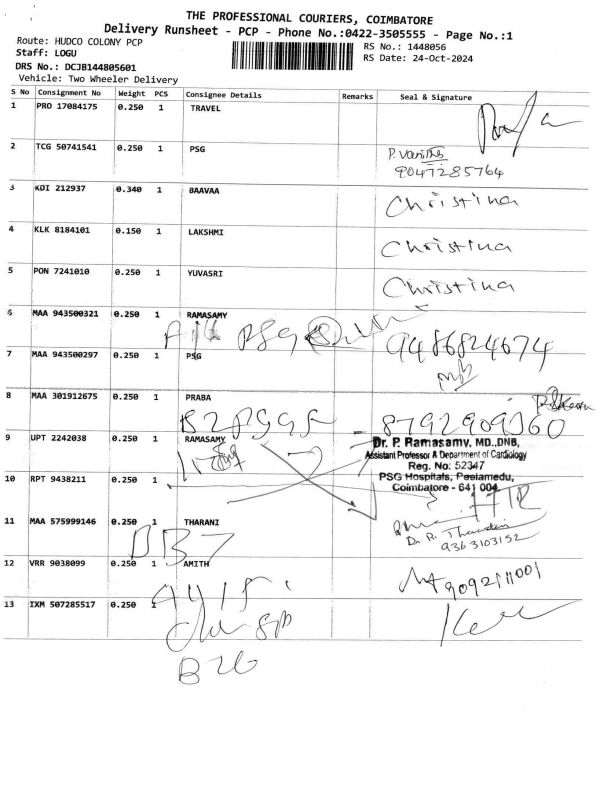 THE PROFESSIONAL COURIERS, COIMBATORE
Delivery Runsheet - PCP - Phone No.:0422-3505555 - Page No.:1
Route: HUDCO COLONY PCP
RS No.: 1448056
Staff: LOGU
RS Date: 24-Oct-2024
DRS No.: DCJB144805601
Vehicle: Two Wheeler Delivery
S No Consignment No Weight PCS Consignee Details Remarks Seal & Signature
1 PRO 17084175 0.250 1 TRAVEL
2 TCG 50741541 0.250 1 PSG P. Vanitha
9047285764
3 KDI 212937 0.340 1 BAAVAA Christina
4 KLK 8184101 0.150 1 LAKSHMI Christina
5 PON 7241010 0.250 1 YUVASRI Christina
6 MAA 943500321 0.250 1 RAMASAMY
PSG 9486824674
7 MAA 943500297 0.250 1 PSG
8 MAA 301912675 0.250 1 PRABA
8792909360
9 UPT 2242038 0.250 1 RAMASAMY
Dr. P. Ramasamy, MD.,DNB,
Assistant Professor & Department of Cardiology
Reg. No: 52347
PSG Hospitals, Peelamedu,
Coimbatore - 641 004.
10 RPT 9438211 0.250 1
11 MAA 575999146 0.250 1 THARANI
9363103152
12 VRR 9038099 0.250 1 AMITH
9092111001
13 IXM 507285517 0.250 1
B26